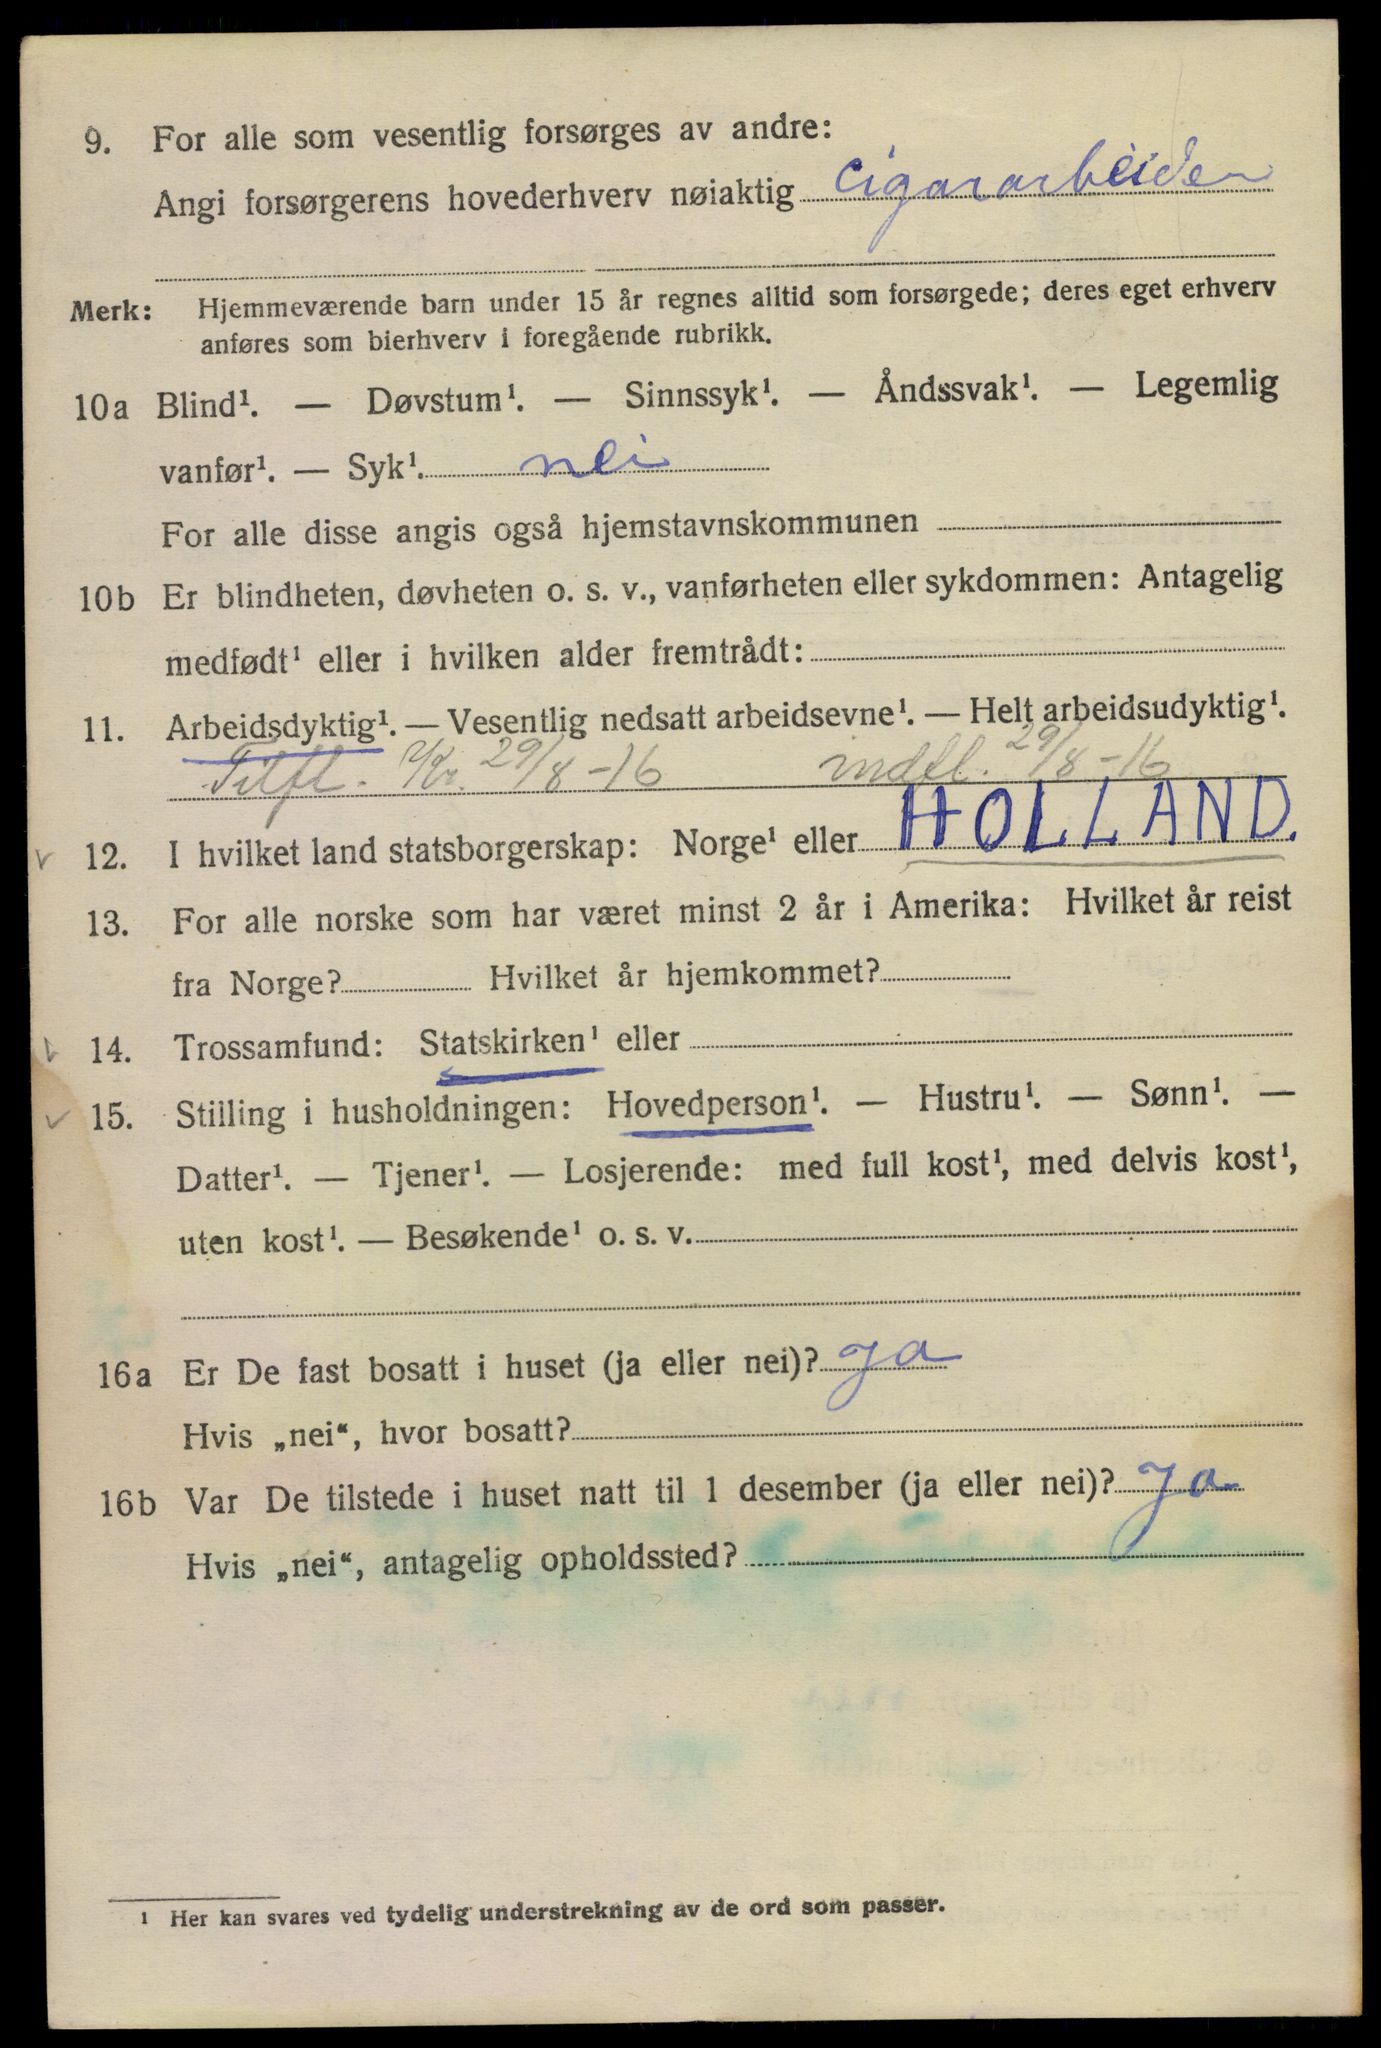 9. For alle som vesentlig forsørges av andre:
Angi forsørgerens hovederhverv nøiaktig cigararbeider
Merk: Hjemmeværende barn under 15 år regnes alltid som forsørgede; deres eget erhverv
anføres som bierhverv i foregående rubrikk.
10a Blind¹. — Døvstum¹. — Sinnssyk¹. — Åndssvak¹. — Legemlig
vanfør¹. — Syk¹. nei
For alle disse angis også hjemstavnskommunen
10b Er blindheten, døvheten o. s. v., vanførheten eller sykdommen: Antagelig
medfødt¹ eller i hvilken alder fremtrådt:
11. Arbeidsdyktig¹. — Vesentlig nedsatt arbeidsevne¹. — Helt arbeidsudyktig¹.
Tilfl. Kr. 29/8-16 indfl. 29/8-16
12. I hvilket land statsborgerskap: Norge¹ eller HOLLAND.
13. For alle norske som har været minst 2 år i Amerika: Hvilket år reist
fra Norge? Hvilket år hjemkommet?
14. Trossamfund: Statskirken¹ eller
15. Stilling i husholdningen: Hovedperson¹. — Hustru¹. — Sønn¹. —
Datter¹. — Tjener¹. — Losjerende: med full kost¹, med delvis kost¹,
uten kost¹. — Besøkende¹ o. s. v.
16a Er De fast bosatt i huset (ja eller nei)? Ja
Hvis „nei“, hvor bosatt?
16b Var De tilstede i huset natt til 1 desember (ja eller nei)? Ja
Hvis „nei“, antagelig opholdssted?
¹ Her kan svares ved tydelig understrekning av de ord som passer.